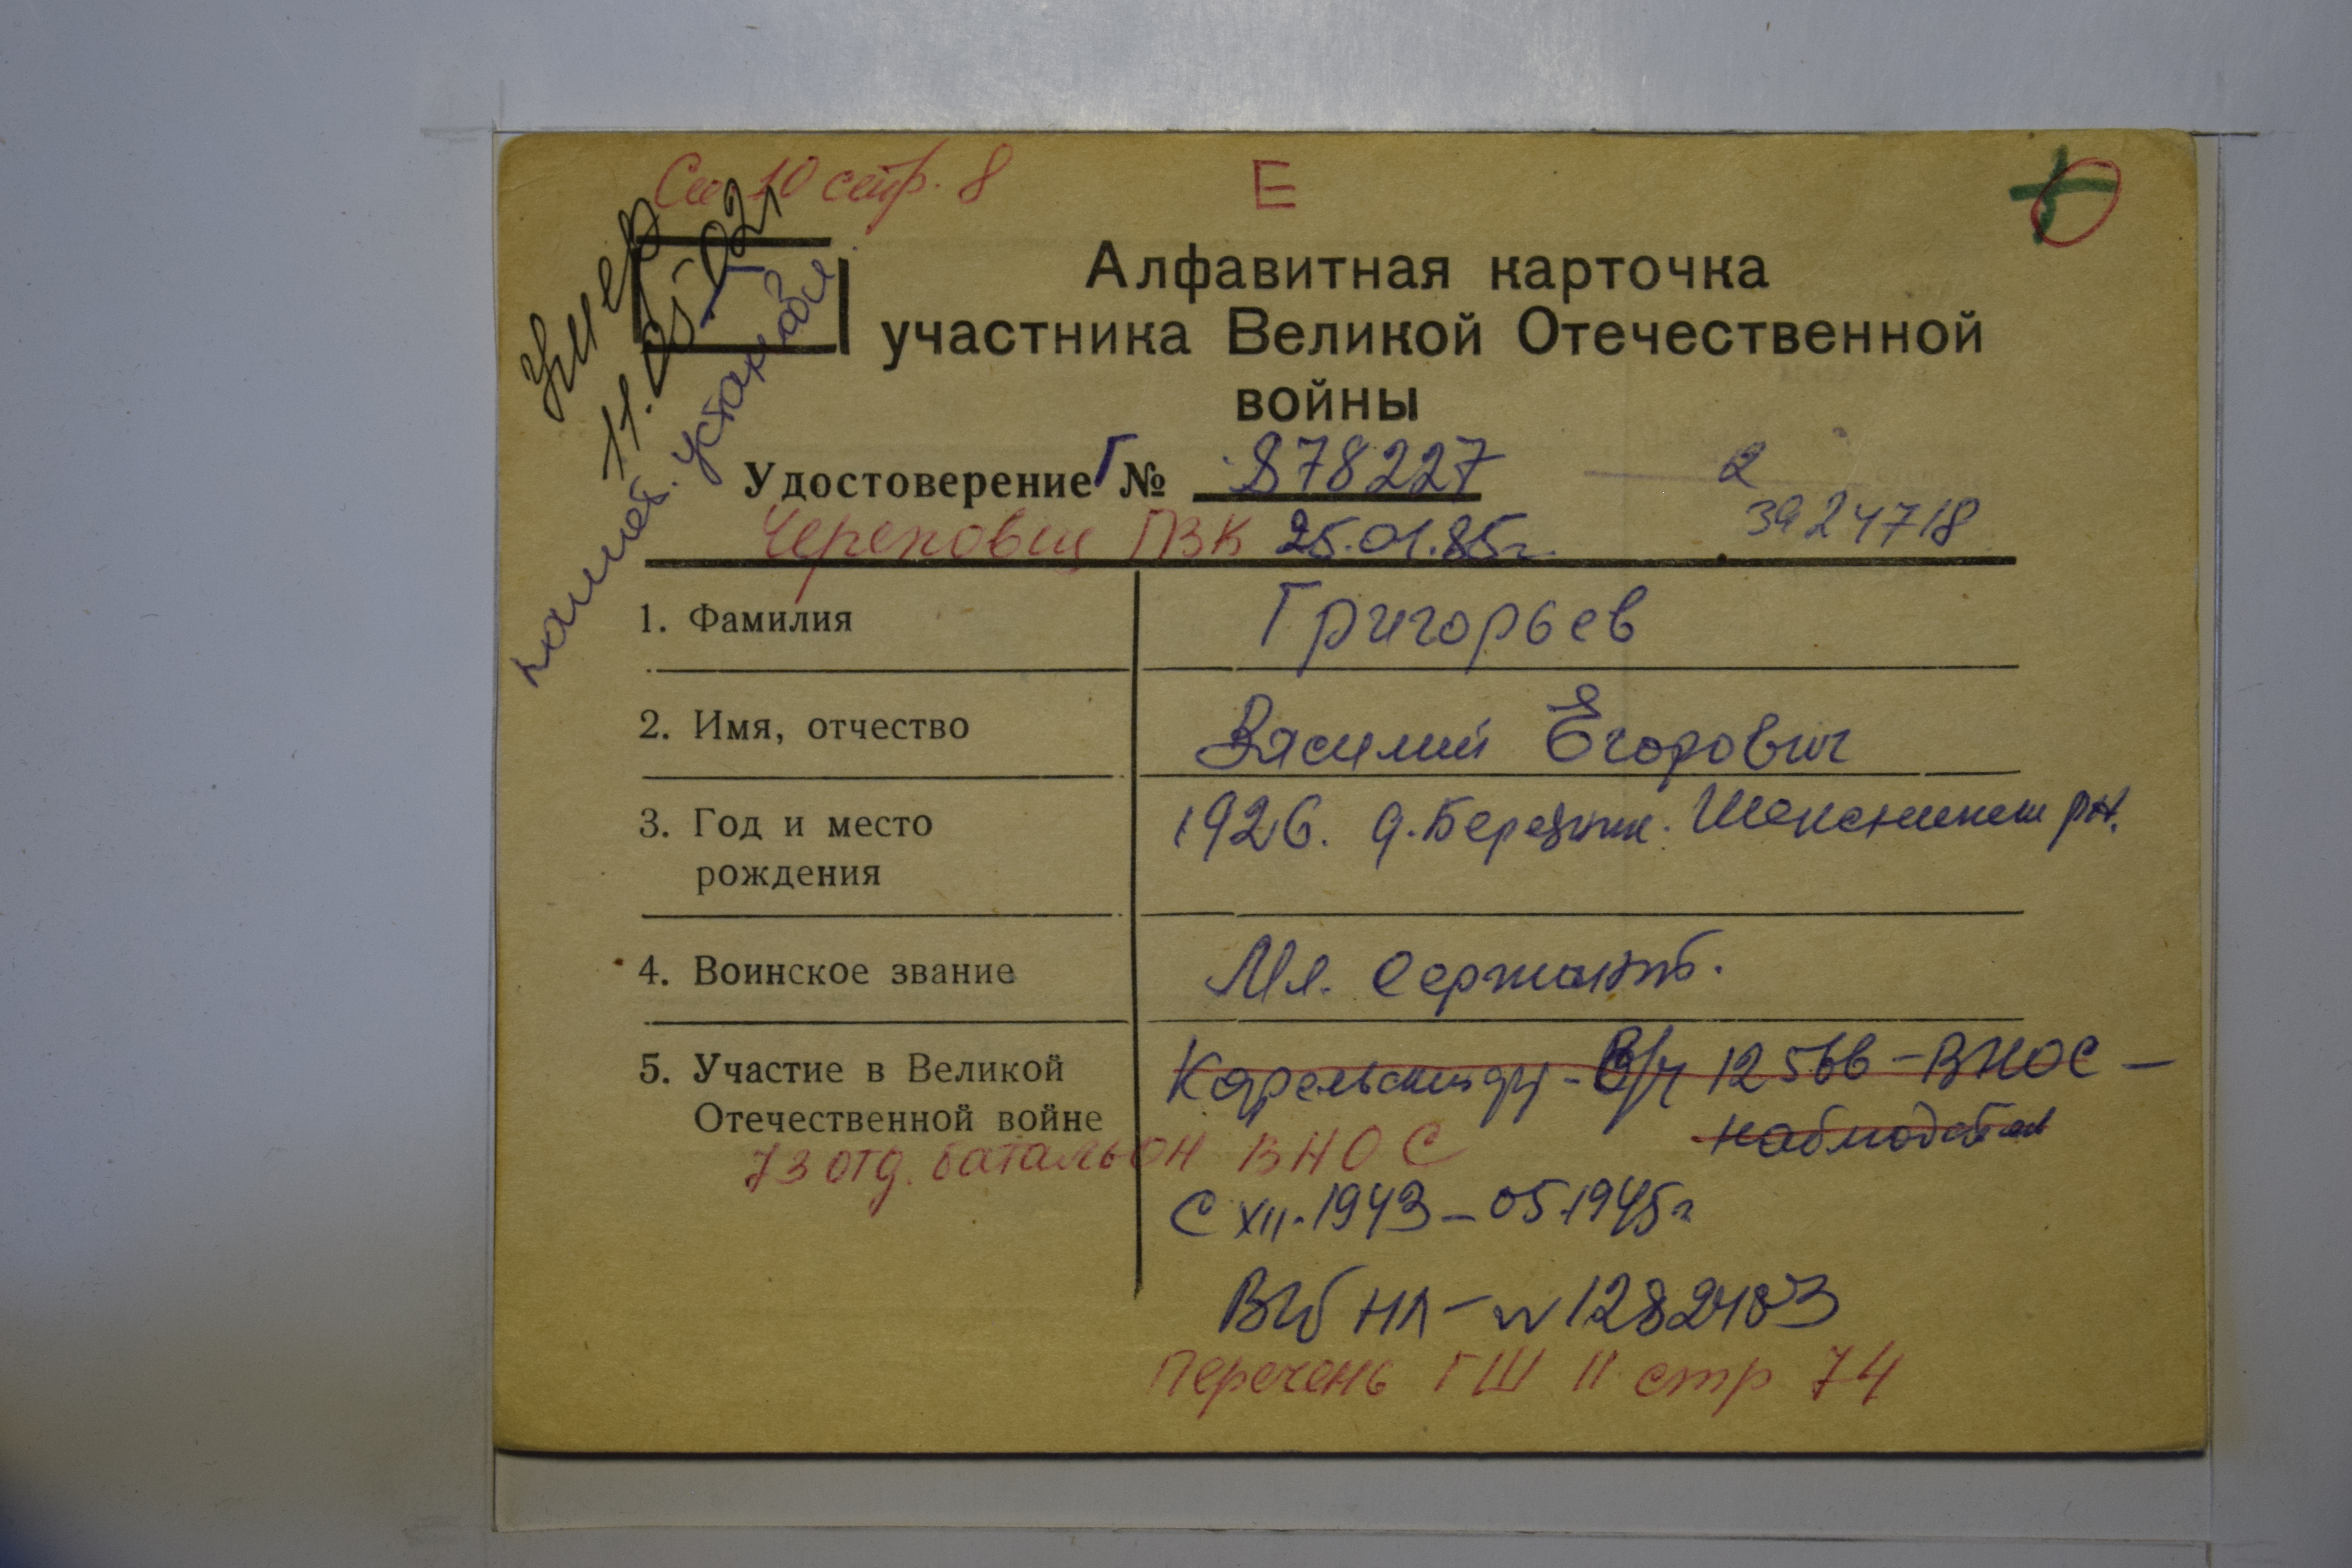 См. 10 стр. 8
Е
Умер
11.05.02г
памят. установл
Алфавитная карточка
участника Великой Отечественной
войны
Удостоверение Г № 878227
2
3924718
Череповец ГВК 25.01.85г.
1. Фамилия Григорьев
2. Имя, отчество Василий Егорович
3. Год и место 1926. д. Шекснинск рн.
рождения
4. Воинское звание Мл. Сержант.
5. Участие в Великой Карельский фр - В/ч 12566 - ВНОС -
Отечественной войне наблюдатель
73 отд. батальон ВНОС
С XII. 1943 - 05.1945г
ВБ НЛ - № 1282483
Перечень ГШ II стр 74